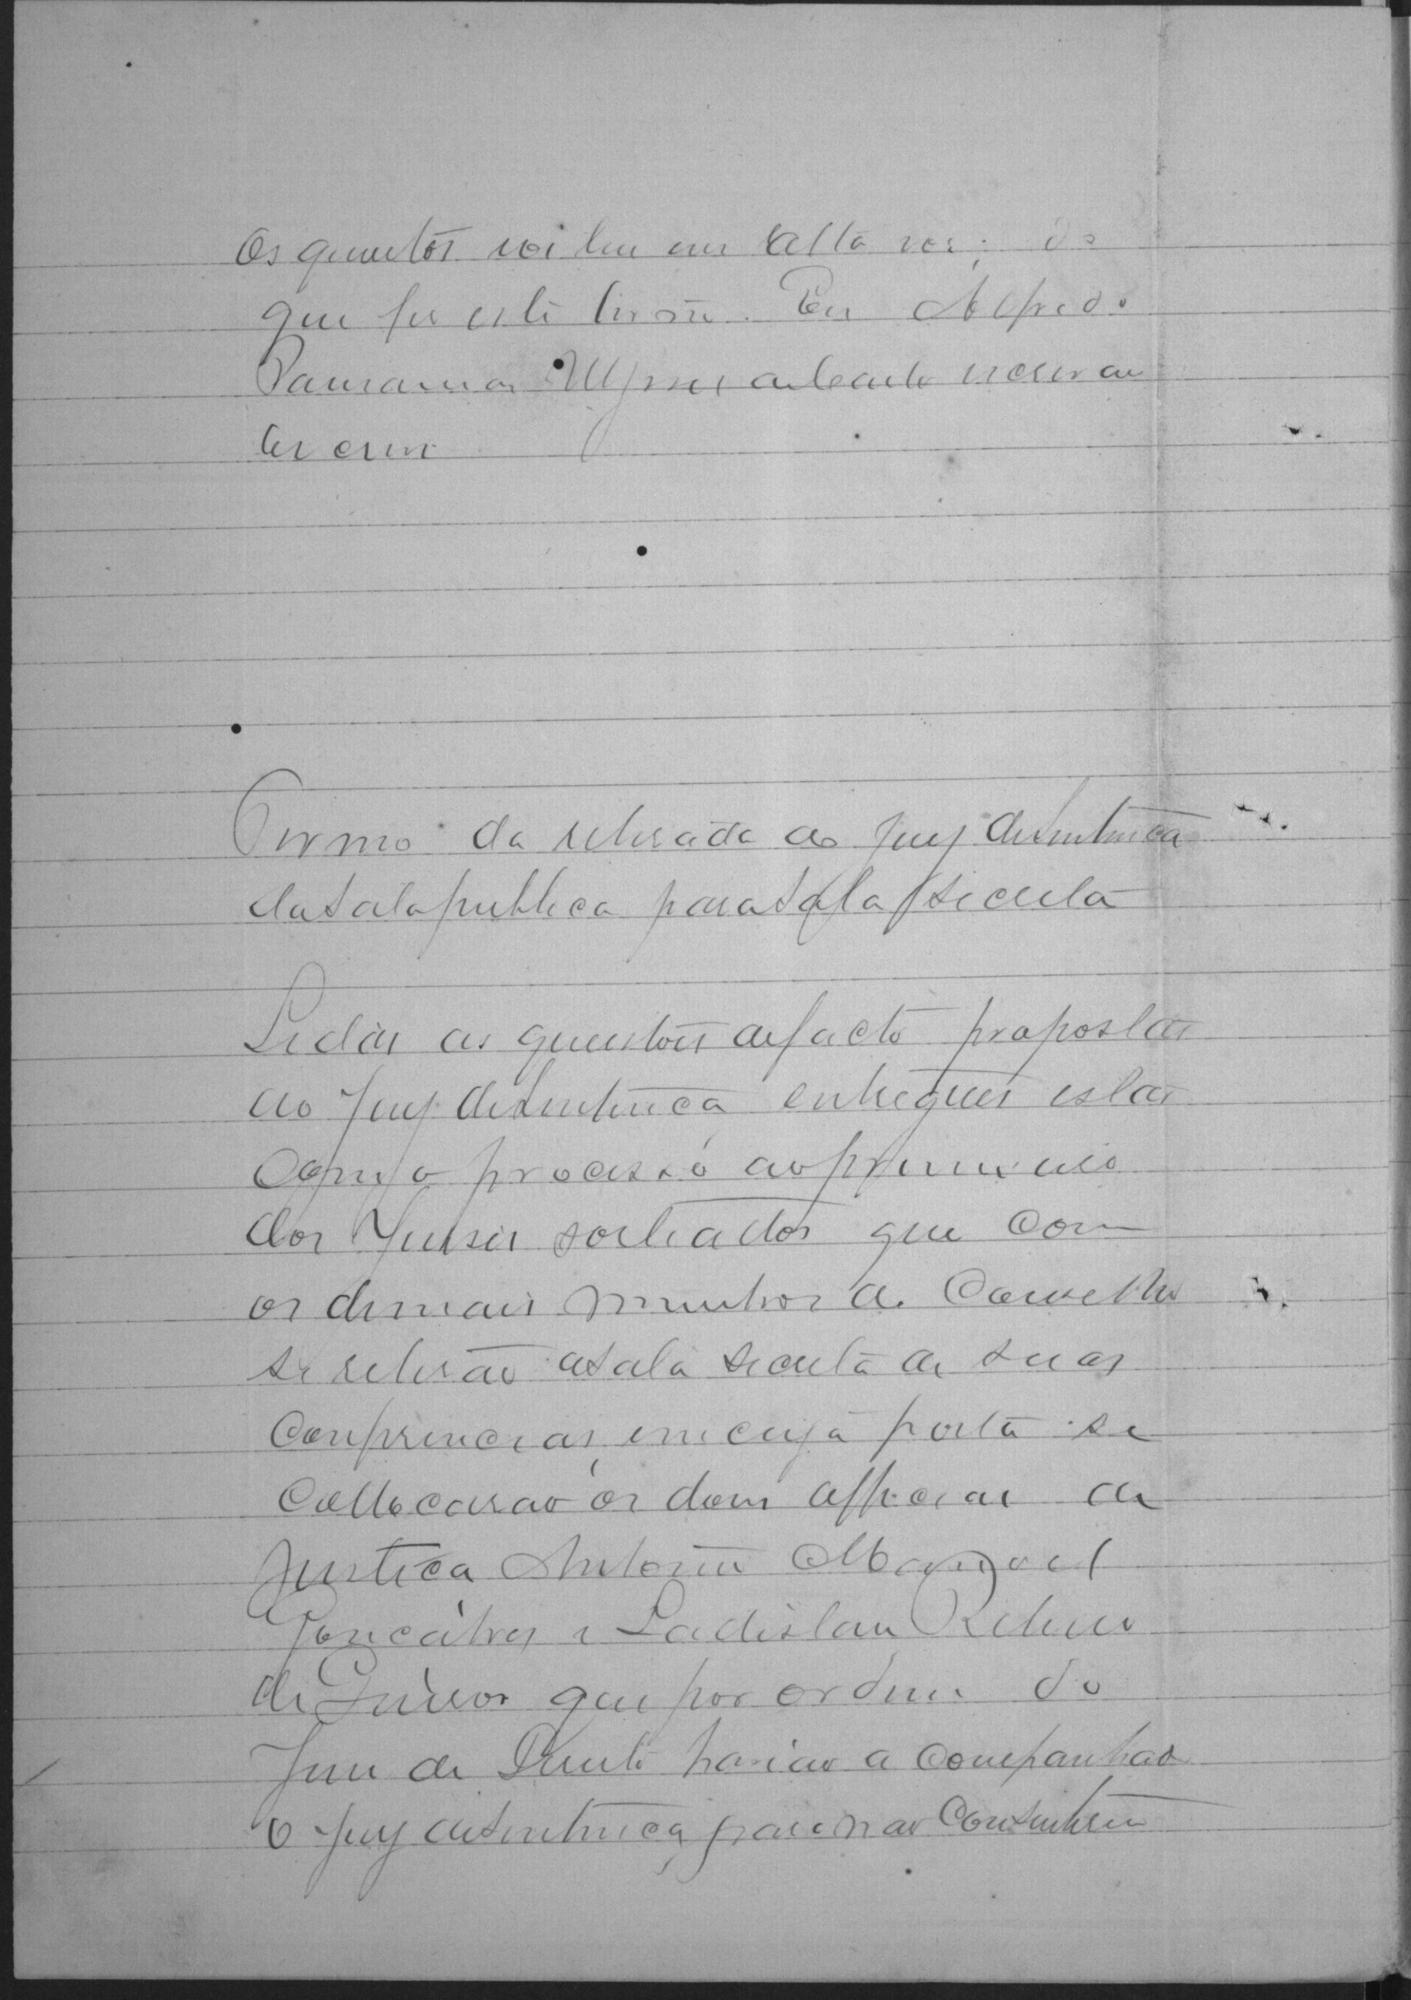 os quesitos e os leu em alta voz; do
que fiz este termo. Eu Alfredo
escrivão
escrevi
Termo da retirada do Jury de sentença
da sala publica para sala secreta
Lidas as questões de facto propostas
ao Jury de sentença entregues estas
com o processo ao primeiro
dos Juises sorteados que com
os demais membros do Conselho
se retirão a sala secreta de suas
conferencias, em cuja porta se
collocarão os dous officiaes de
Justiça Antonio Manoel
Gonçalves e Ladislau Ribeiro
de que por ordem do
Juiz de Direito havião acompanhado
o Jury de sentença, para não consentirem